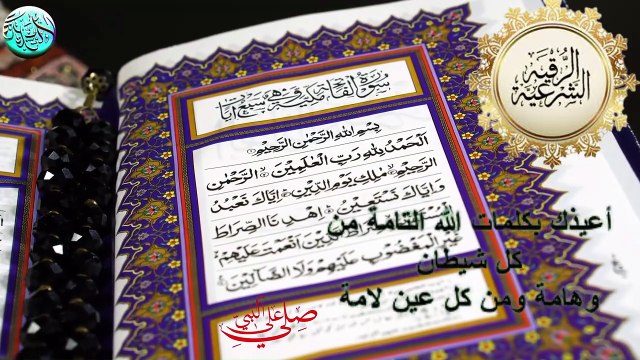 الرُّقية
الشرعية
سورة الفاتحة مكية وهي سبع آيات
بِسْمِ اللهِ الرَّحْمٰنِ الرَّحِيْمِ
اَلْحَمْدُ لِلّٰهِ رَبِّ الْعٰلَمِيْنَ الرَّحْمٰنِ
الرَّحِيْمِ مٰلِكِ يَوْمِ الدِّيْنِ اِيَّاكَ نَعْبُدُ
وَاِيَّاكَ نَسْتَعِيْنُ اِهْدِنَا الصِّرَاطَ
اَنْعَمْتَ عَلَيْهِمْ
غَيْرِ الْمَغْضُوْبِ عَلَيْهِمْ وَلَا الضَّآلِّيْنَ
أعيذك بكلمات الله التامة من
كل شيطان
وهامة ومن كل عين لامة
صلي على النبي